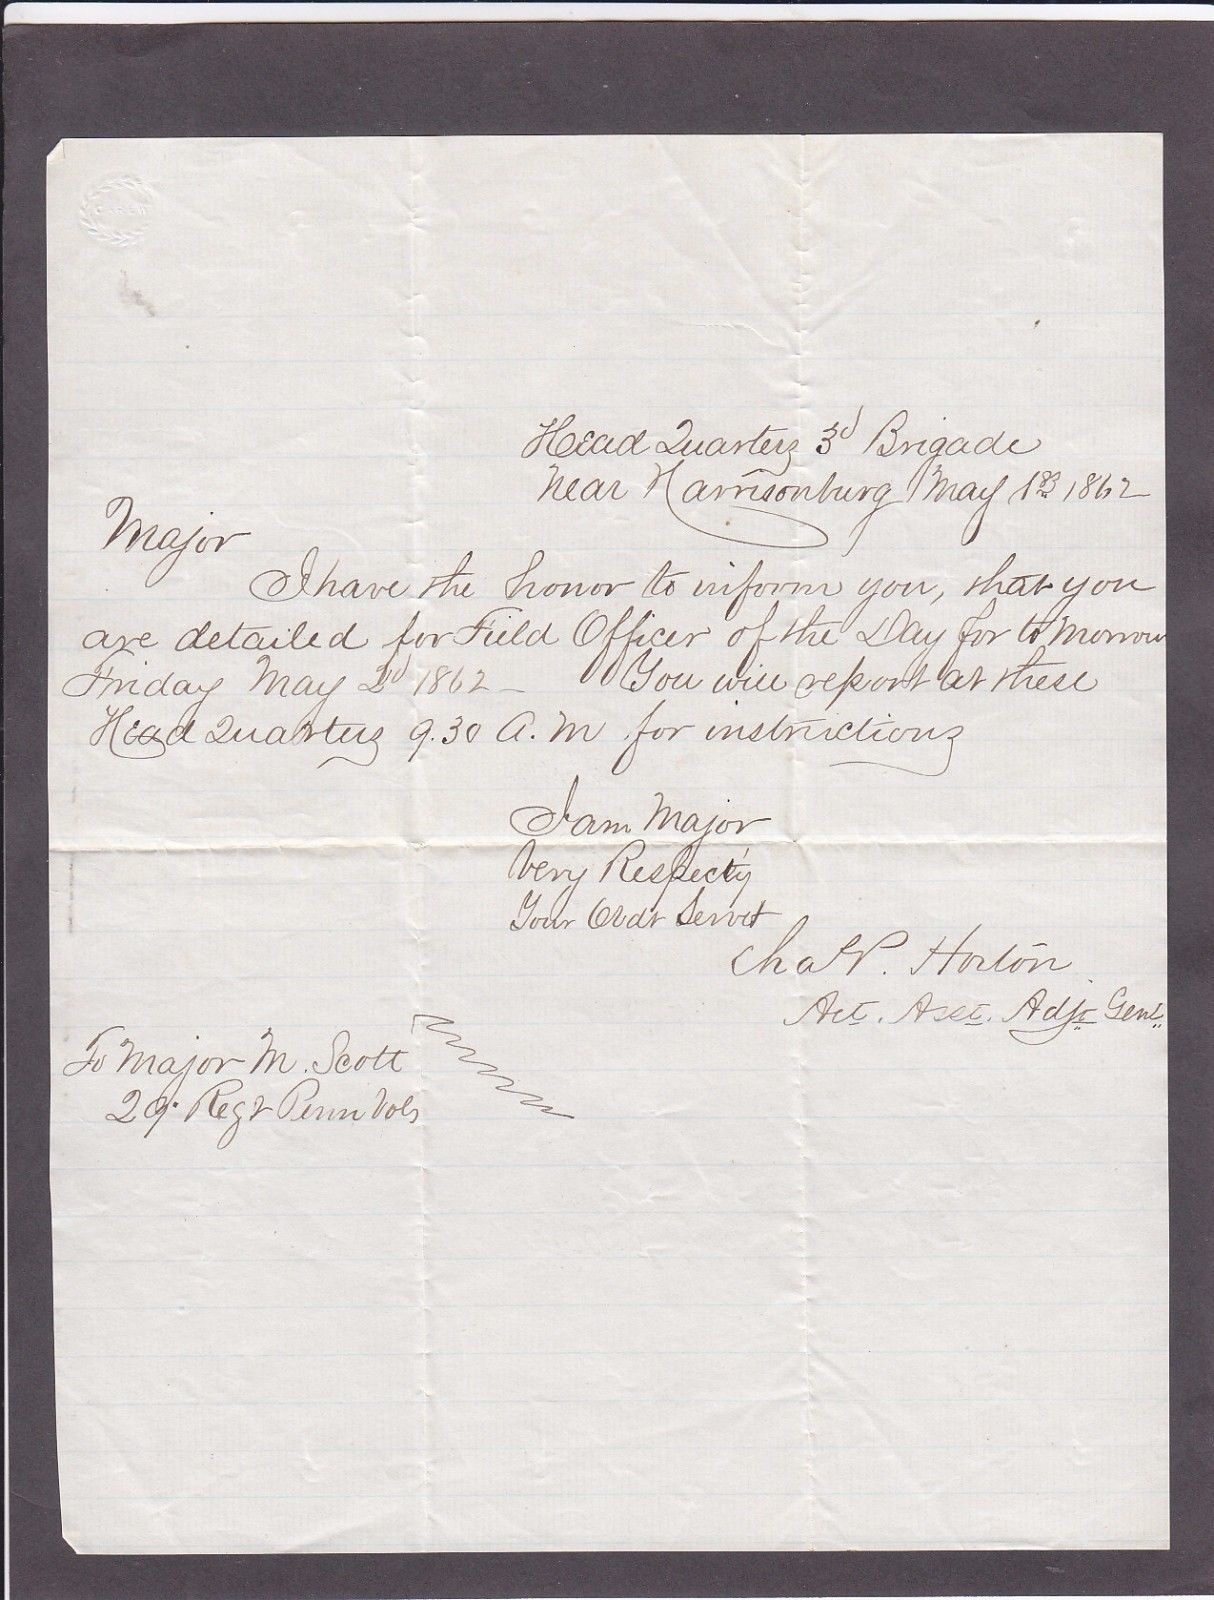 Head Quarters 3d Brigade
Near Harrisonburg May 1st 1862
Major
I have the honor to inform you, that you
are detailed for Field Officer of the Day for to Morrow
Friday May 2d 1862 – You will report at these
Head Quarters 9.30 A.M. for instructions
I am Major
Very Respecty
Your Obdt Servt
Horton
Act. Asst. Adjt Genl.
To Major M. Scott
29. Regt Penn Vols